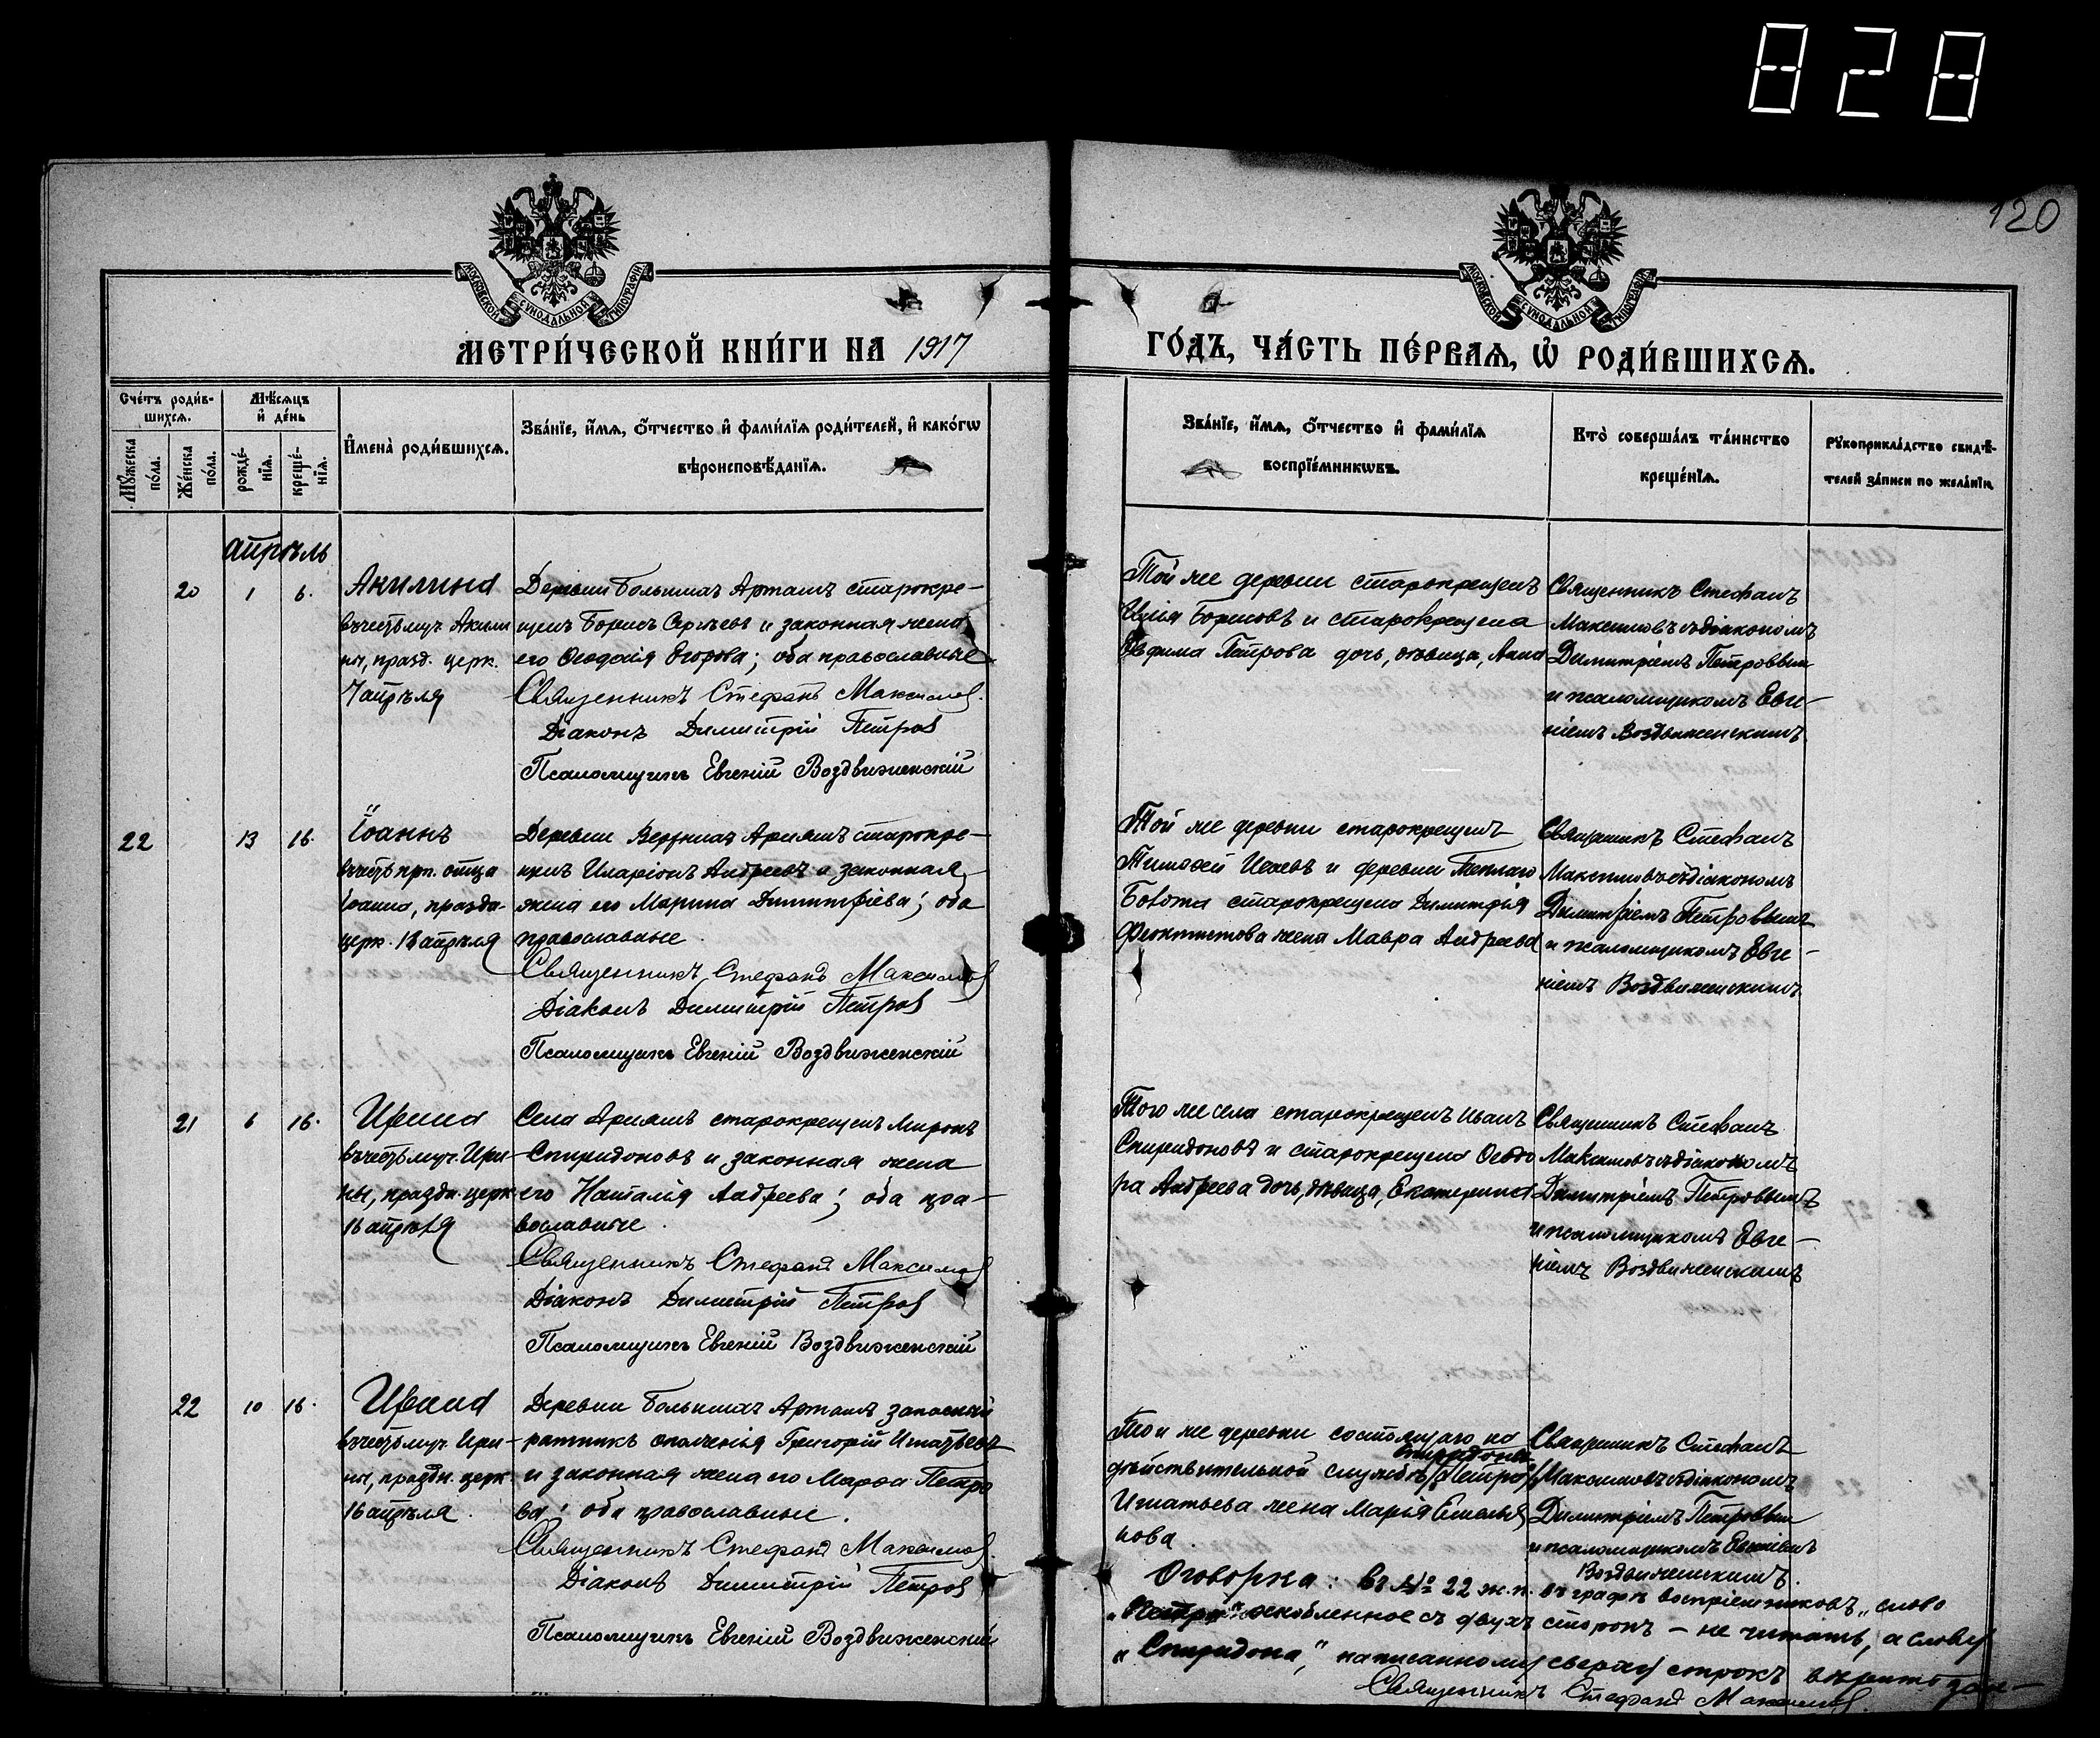 828
120
МОСКОВСКОЙ СѴНОДАЛЬНОЙ ТИПОГРАФІИ
МОСКОВСКОЙ СѴНОДАЛЬНОЙ ТИПОГРАФІИ
МЕТРИ́ЧЕСКОЙ КНИ́ГИ НА 1917
ГО́ДЪ, ЧА́СТЬ ПЕ́РВАѦ, Ѽ РОДИ́ВШИХСѦ.
Сче́тъ роди́в-
шихсѧ.
Мꙋ́жеска по́ла.
Же́нска по́ла.
Мѣ́сѧцъ
и҆ де́нь
рожде́-
нїѧ.
креще́-
нїѧ.
И҆мена̀ роди́вшихсѧ.
Зва́нїе, и҆́мѧ, ѻ҆́тчество и҆ фами́лїѧ роди́телей, и҆ како́гѡ
вѣроисповѣ́данїѧ.
Зва́нїе, и҆́мѧ, ѻ҆́тчество и҆ фами́лїѧ
воспрїе́мникѡвъ.
Кто̀ соверша́лъ та́инство
креще́нїѧ.
Рꙋкоприкла́дство свидѣ́-
телей за́писи по жела́нїю.
апрѣль
20 1 6.
Акилина
въ честь муч. Акили
ны, празд. церк.
7 апрѣля
Деревни Большихъ Арташъ старокре-
щенъ Борисъ Сергѣевъ и законная жена
его Ѳеодосія Егорова; оба православные
Священникъ Стефанъ Максимов.
Діаконъ Димитрій Петров
Псаломщикъ Евгеній Воздвиженскій
Той же деревни старокрещенъ
Илія Борисовъ и старокрещена
Евфима Петрова дочь, дѣвица, Анна
Священникъ Стефанъ
Максимовъ съ діакономъ
Димитріемъ Петровым
и псаломщикомъ Евге-
ніемъ Воздвиженскимъ.
22 13 16.
Іоаннъ
въ честь прп. отца
Іоанна, праздн.
церк. 18 апрѣля
Деревни Верхнихъ Арняшъ старокре-
щенъ Иларіонъ Андреевъ и законная
жена его Марина Димитріева; оба
православные.
Священникъ Стефанъ Максимов
Діаконъ Димитрій Петров
Псаломщикъ Евгеній Воздвиженскій
Той же деревни старокрещенъ
Тимоѳей Исаевъ и деревни Теплаго
Болота старокрещена Димитрія
Феоктистова жена Мавра Андреева
Священникъ Стефанъ
Максимовъ съ діакономъ
Димитріемъ Петровымъ
и псаломщикомъ Евге-
ніемъ Воздвиженскимъ.
21 6 16.
Ирина
въ честь муч. Ири-
ны, праздн. церк.
16 апрѣля
Села Арняшъ старокрещенъ Миронъ
Спиридоновъ и законная жена
его Наталія Андреева; оба пра-
вославные.
Священникъ Стефанъ Максимов
Діаконъ Димитрій Петров
Псаломщикъ Евгеній Воздвиженскій
Того же села старокрещенъ Иванъ
Спиридоновъ и старокрещена Ѳеодо
ра Андреева дочь, дѣвица, Екатерина
Священникъ Стефанъ
Максимовъ съ діакономъ
Димитріемъ Петровымъ
и псаломщикомъ Евге-
ніемъ Воздвиженскимъ
22 10 16.
Ирина
въ честь муч. Ири-
ны, праздн. церк.
16 апрѣля.
Деревни Большихъ Арташъ запасный
ратникъ ополченія Григорій Игнатьевъ
и законная жена его Марѳа Петро
ва; оба православные.
Священникъ Стефанъ Максимов.
Діаконъ Димитрій Петров
Псаломщикъ Евгеній Воздвиженскій
Той же деревни состоящаго на
Спиридона
дѣйствительной службѣ (Петра)
Игнатьева жена Марія Емелья
нова.
Священникъ Стефанъ
Максимовъ съ діакономъ
Димитріемъ Петровым
и псаломщикомъ Евгеніемъ
Воздвиженскимъ.
Оговорка: въ № 22 ж.п. въ графѣ воспріемниковъ, слово
"Петра" оскобленное съ двухъ сторонъ - не читать, а слову
"Спиридона", написанному сверху строкъ вѣрить
Священникъ Стефанъ Максимов.